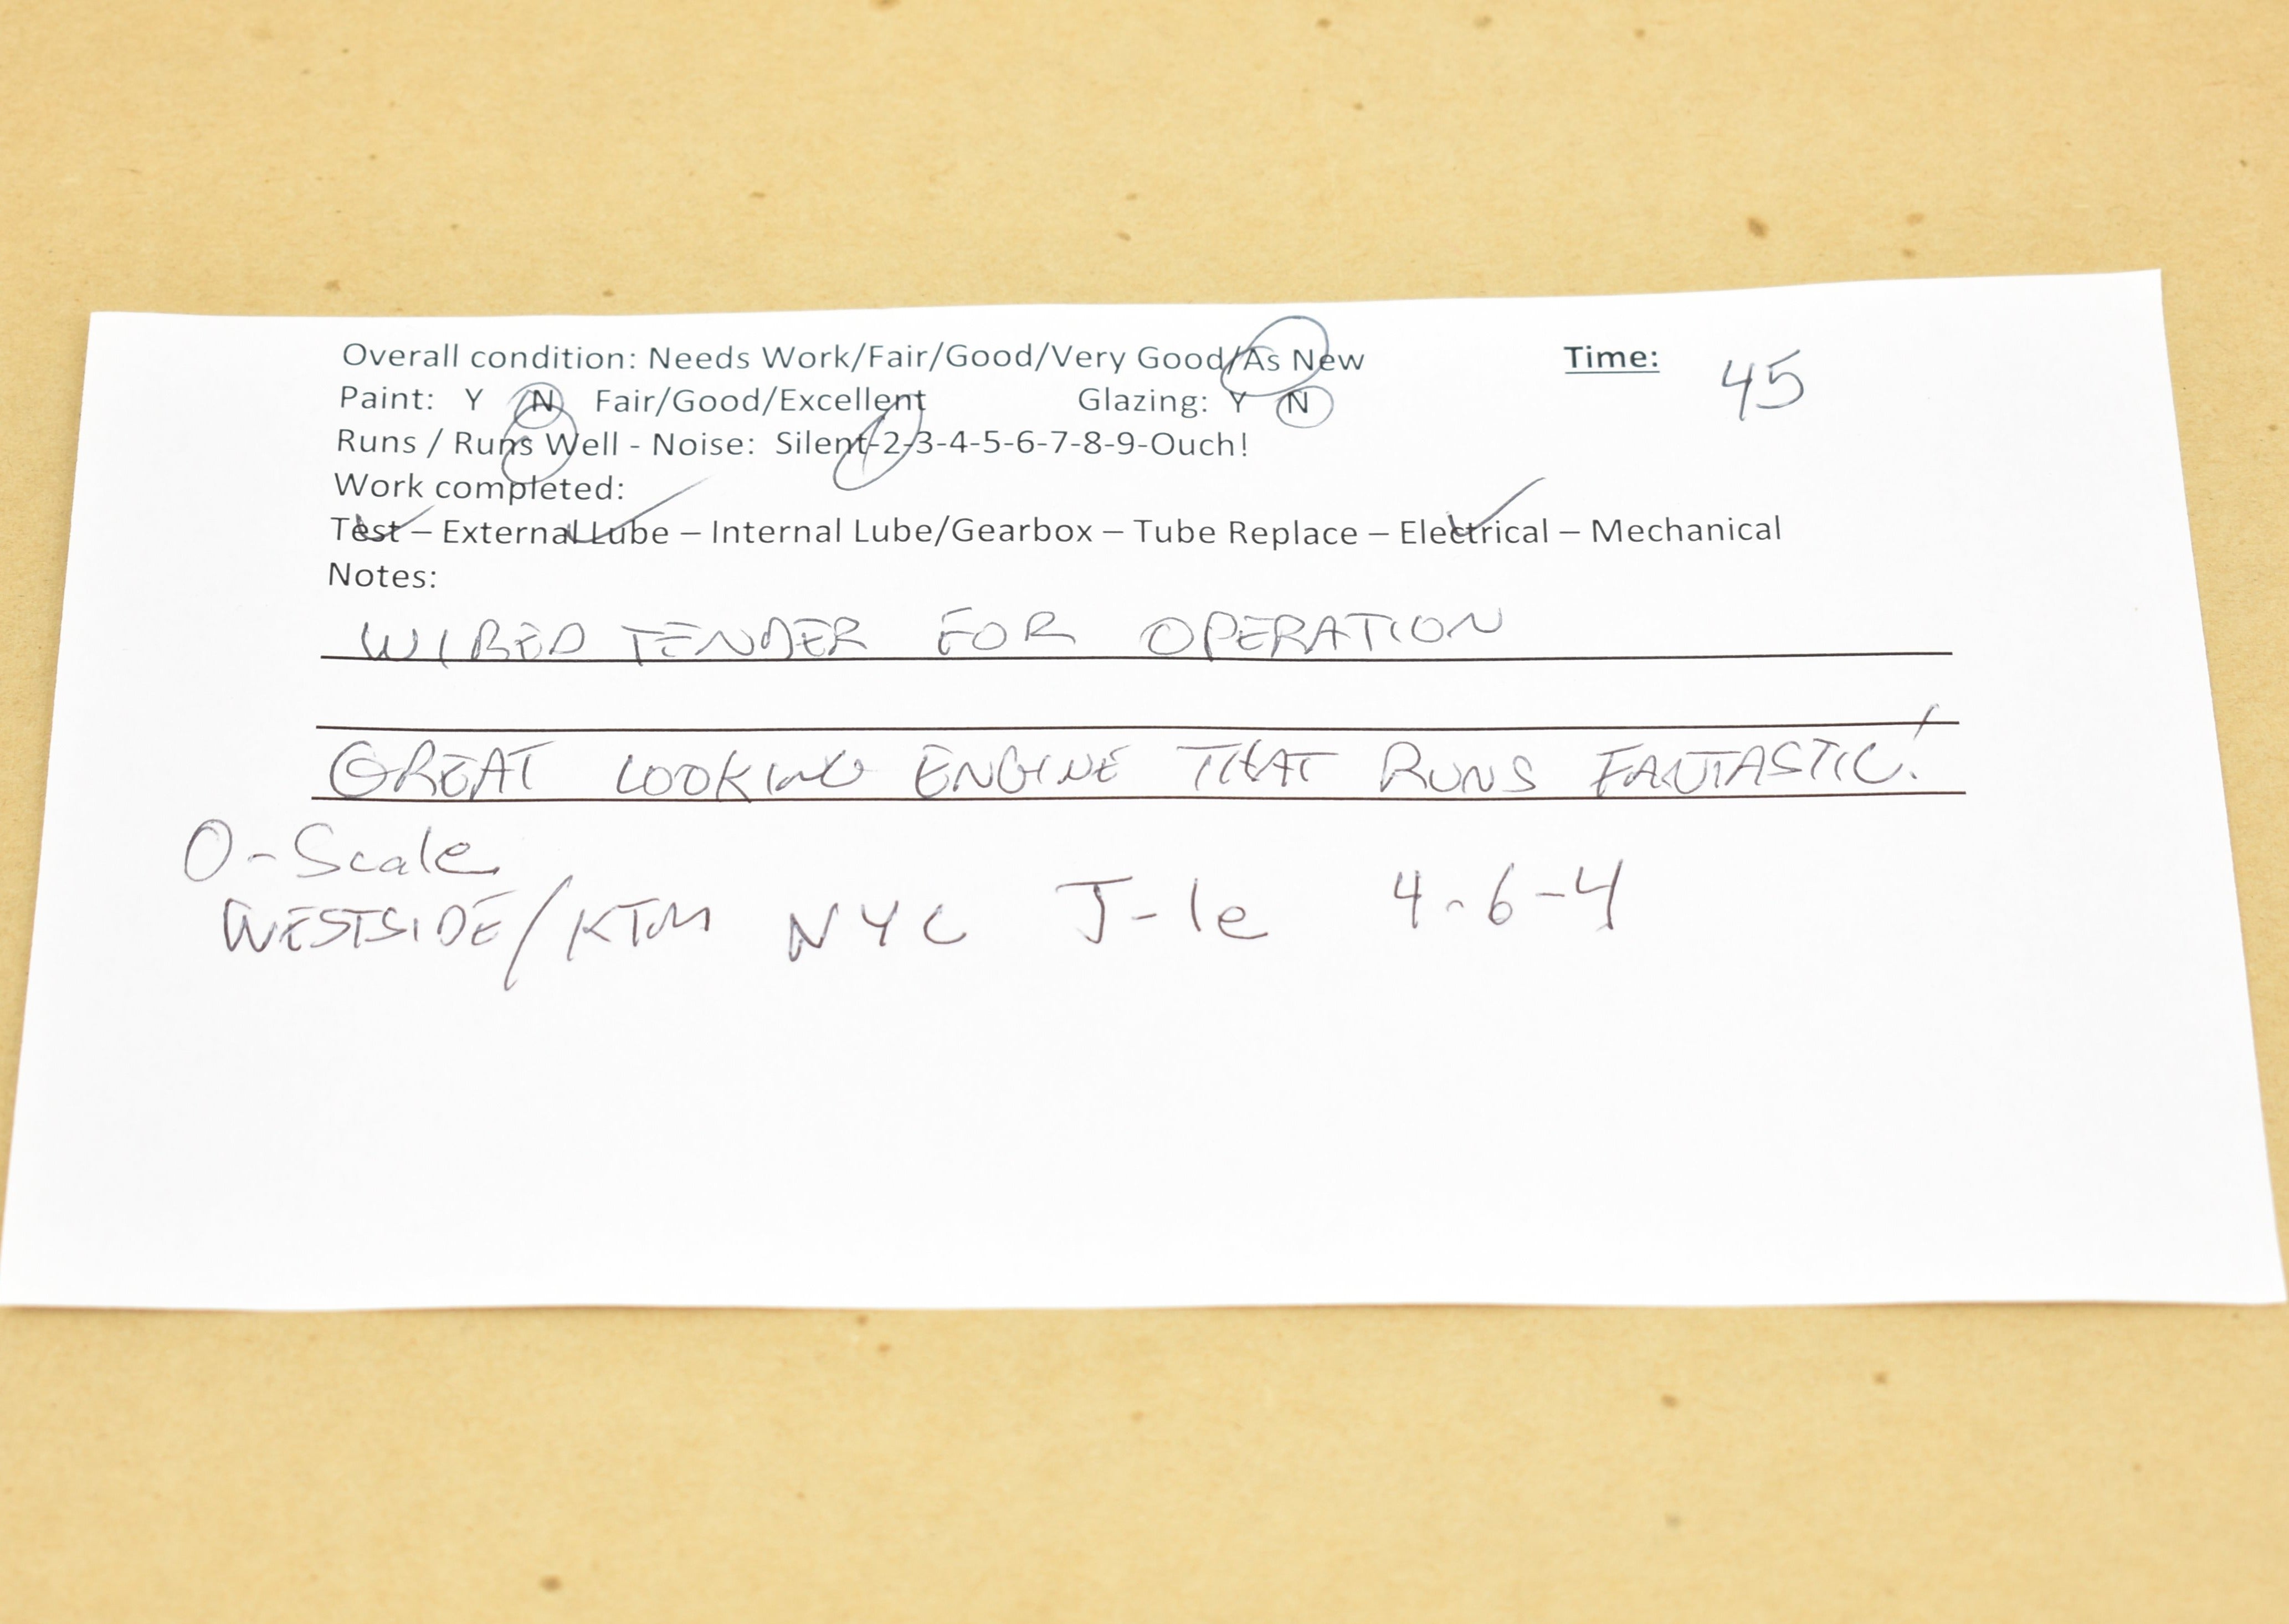 Overall condition: Needs Work/Fair/Good/Very Good/As New Time: 45
Paint: Y N Fair/Good/Excellent Glazing: Y N
Runs / Runs Well - Noise: Silent-2-3-4-5-6-7-8-9-Ouch!
Work completed:
Test – External Lube – Internal Lube/Gearbox – Tube Replace – Electrical – Mechanical
Notes:
WIRED TENDER FOR OPERATION
GREAT LOOKING ENGINE THAT RUNS FANTASTIC!
O-Scale
WESTSIDE/KTM NYC J-1e 4-6-4